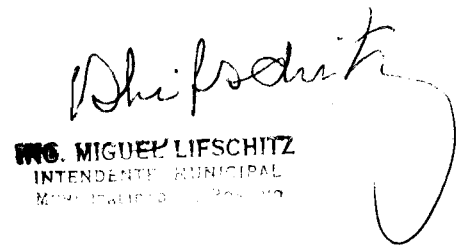 Lifschitz
ING. MIGUEL LIFSCHITZ
INTENDENTE MUNICIPAL